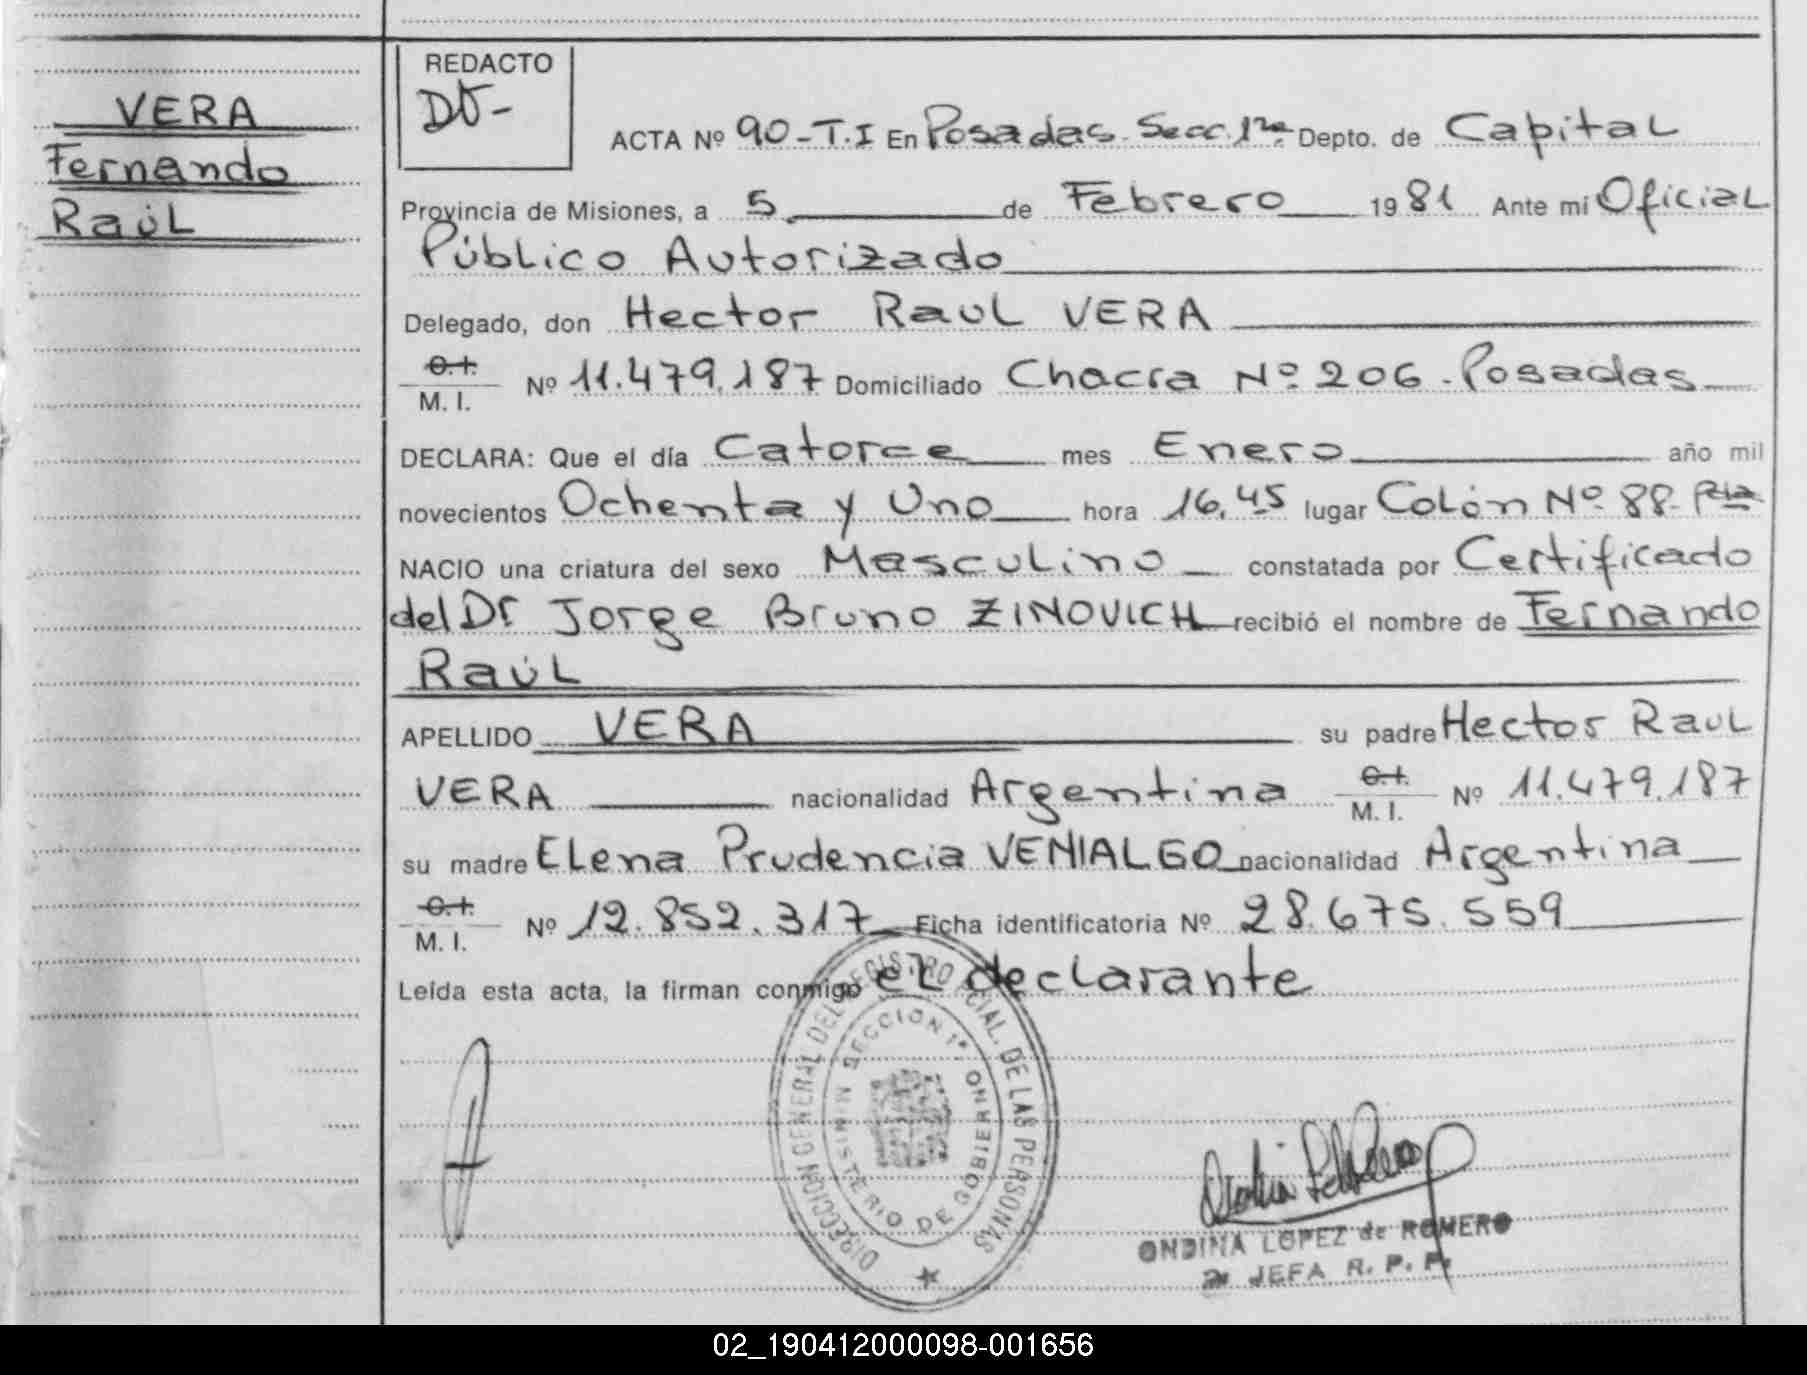 VERA
Fernando
Raúl
REDACTO
ACTA Nº 90-T.I En Posadas. Secc. 1ra. Depto. de Capital
Provincia de Misiones, a 5 de Febrero 1981 Ante mi Oficial
Público Autorizado
Delegado, don Hector Raul VERA
C.I.
M. I. Nº 11.479.187 Domiciliado Chacra Nº 206. Posadas
DECLARA: Que el día Catorce mes Enero año mil
novecientos Ochenta y Uno hora 16,45 lugar Colón Nº 88-
NACIO una criatura del sexo Masculino constatada por Certificado
del Dr Jorge Bruno ZINOVICH recibió el nombre de Fernando
Raúl
APELLIDO VERA su padre Hector Raul
VERA nacionalidad Argentina C.I.
M. I. Nº 11.479.187
su madre Elena Prudencia VENIALGO nacionalidad Argentina
C.I.
M. I. Nº 12.852.317 Ficha identificatoria Nº 28.675.559
Leída esta acta, la firman conmigo el declarante
DIRECCION GENERAL DEL REGISTRO PCIAL. DE LAS PERSONAS
SECCION 1ª
MINISTERIO DE GOBIERNO
ONDINA LOPEZ de ROMERO
JEFA R. P. P.
02_190412000098-001656